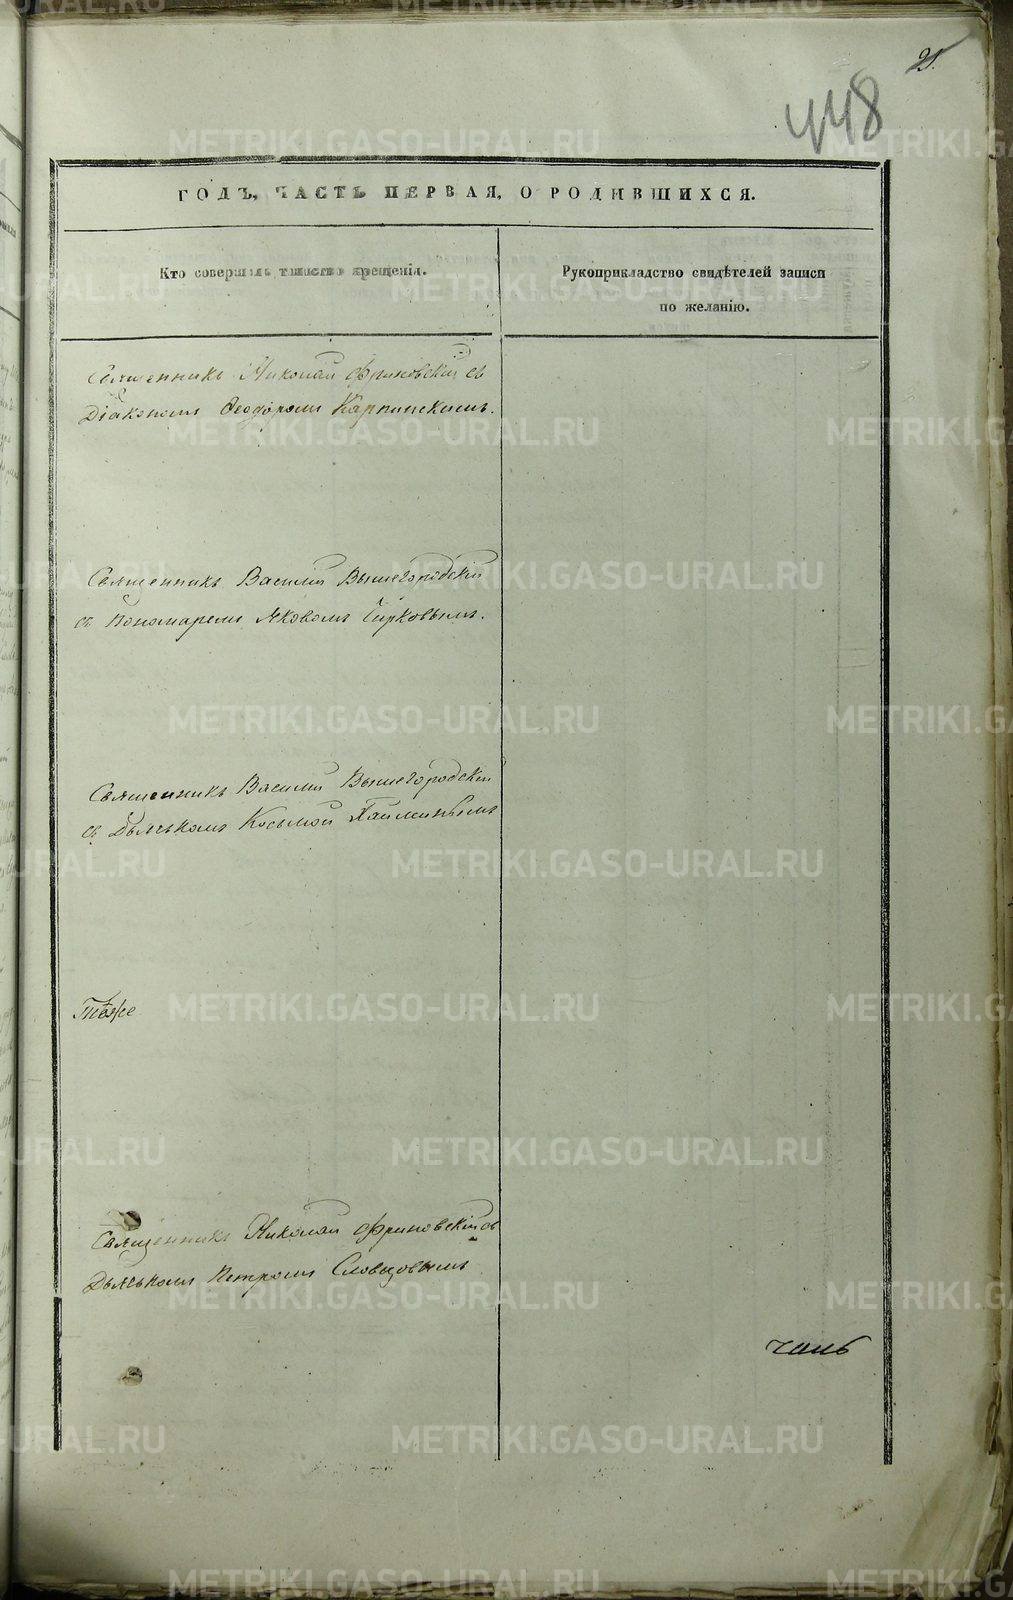 21.
448
ГОДЪ, ЧАСТЬ ПЕРВАЯ, О РОДИВШИХСЯ.
Кто совершалъ таинство крещенія.
Рукоприкладство свидѣтелей записи
по желанію.
Священникъ Николай Фриновскій съ
Діакономъ Ѳеодоромъ Карпинскимъ.
Священникъ Василій Вышегородскій
съ Пономаремъ Яковомъ Чирковымъ.
Священникъ Василій Вышегородскій
съ Дьячкомъ Косьмой
Тѣже
Священникъ Николай Фриновскій съ
Дьячкомъ Петромъ Словцовымъ
METRIKI.GASO-URAL.RU